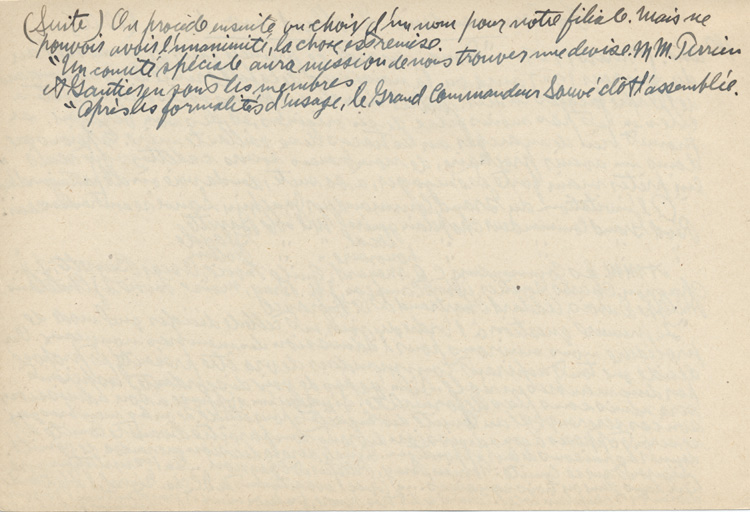 (Suite) On procède ensuite au choix d'un nom pour notre filiale. Mais ne
pouvoir avoir l'unanimité, la chose est remise.
"Un comité spéciale aura mission de nous trouver une devise. MM. Terrien
et Gautier en sont les membres
"Après les formalités d'usage, le Grand Commandeur Sauvé clôt l'assemblée.